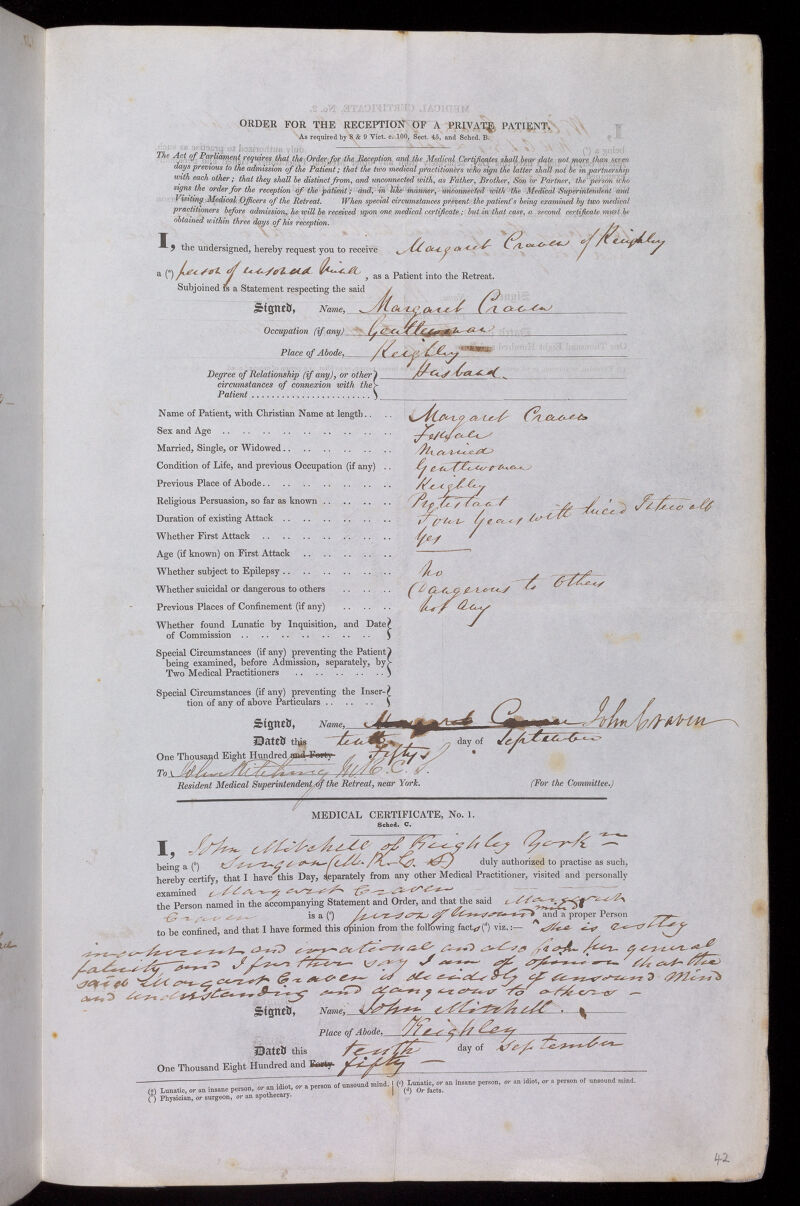 ORDER FOR THE RECEPTION OF A PRIVATE PATIENT.
As required by 8 & 9 Vict. c. 100, Sect. 45, and Sched. B.
The Act of Parliament requires that the Order for the Reception and the Medical Certificates shall bear date not more than seven
days previous to the admission of the Patient; that the two medical practitioners who sign the latter shall not be in partnership
with each other; that they shall be distinct from, and unconnected with, as Father, Brother, Son or Partner, the person who
signs the order for the reception of the patient; and, in like manner, unconnected with the Medical Superintendent and
Visiting Medical Officers of the Retreat. When special circumstances prevent the patient's being examined by two medical
practitioners before admission, he will be received upon one medical certificate; but in that case, a second certificate must be
obtained within three days of his reception.
I, the undersigned, hereby request you to receive Margaret Craven of Keighley
a (a) person of unsound mind, as a Patient into the Retreat.
Subjoined is a Statement respecting the said
Signed, Name, Margaret Craven
Occupation (if any) Gentlewoman
Place of Abode, Keighley
Degree of Relationship (if any), or other Husband.
circumstances of connexion with the
Patient
Name of Patient, with Christian Name at length Margaret Craven
Sex and Age Female
Married, Single, or Widowed Married
Condition of Life, and previous Occupation (if any) Gentlewoman
Previous Place of Abode Keighley
Religious Persuasion, so far as known Protestant
Duration of existing Attack Four Years with lucid Intervalls
Whether First Attack Yes
Age (if known) on First Attack
Whether subject to Epilepsy No
Whether suicidal or dangerous to others Dangerous to Others
Previous Places of Confinement (if any) Not Any
Whether found Lunatic by Inquisition, and Date
of Commission
Special Circumstances (if any) preventing the Patient
being examined, before Admission, separately, by
Two Medical Practitioners
Special Circumstances (if any) preventing the Inser-
tion of any of above Particulars
Signed, Name, Margaret Craven John Craven
Dated this tenth day of September
One Thousand Eight Hundred and Forty Fifty
To John Kitching M.R.C.S.
Resident Medical Superintendent of the Retreat, near York. (For the Committee.)
MEDICAL CERTIFICATE, No. 1.
Sched. C.
I, John Mitchell of Keighley
being a (b) Surgeon (M.R.C.S) duly authorized to practise as such,
hereby certify, that I have this Day, separately from any other Medical Practitioner, visited and personally
examined Margaret Craven
the Person named in the accompanying Statement and Order, and that the said Margaret
Craven is a (c) person of Unsound mind and a proper Person
to be confined, and that I have formed this opinion from the following facts (d) viz.:— "She is
incoherent and irrational and also from her general
fatuity and I further say I am of opinion that the
said Margaret Craven is decidedly of unsound Mind
and understanding and dangerous to others —
Signed, Name, John Mitchell.
Place of Abode, Keighley
Dated this tenth day of September
One Thousand Eight Hundred and Forty fifty —
(a) Lunatic, or an insane person, or an idiot, or a person of unsound mind. (c) Lunatic, or an insane person, or an idiot, or a person of unsound mind.
(b) Physician, or surgeon, or an apothecary. (d) Or facts.
42